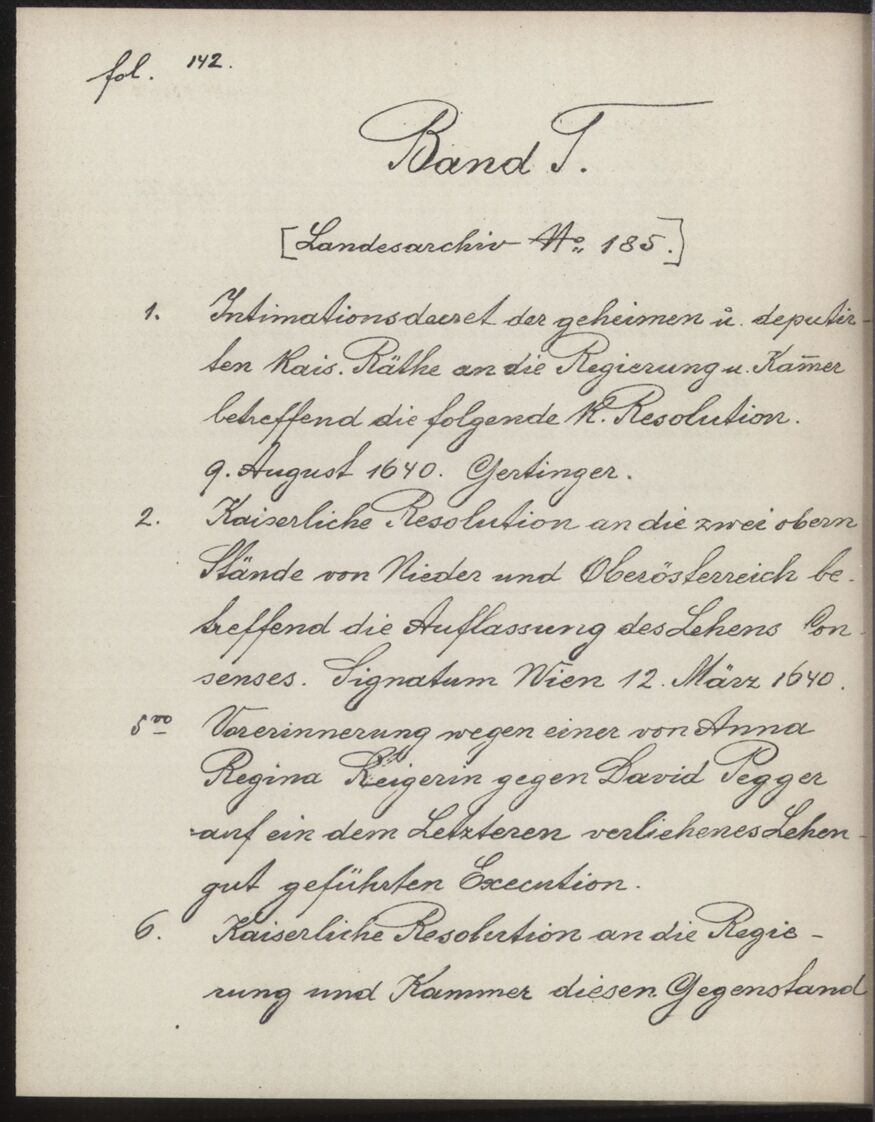 fol. 142.
Band T.
[Landesarchiv No. 185.]
1. Intimationsdecret der geheimen u. deputir-
ten Kais. Räthe an die Regierung u. Kam̄er
betreffend die folgende K. Resolution.
9. August 1640. Gertinger.
2. Kaiserliche Resolution an die zwei obern
Stände von Nieder und Oberösterreich be-
treffend die Auflassung des Lehens Con-
senses. Signatum Wien 12. März 1640.
5 vo Vorerinnerung wegen einer von Anna
Regina gegen David Pegger
auf ein dem Letzteren verliehenes Lehen-
gut geführten Execution.
6. Kaiserliche Resolution an die Regie-
rung und Kammer diesen Gegenstand